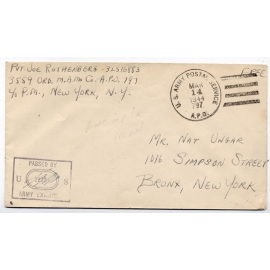 Pvt. Joe Rothenberg - 32510883
3559 Ord. M.A.M. Co. A.P.O. 797
c/o P.M., New York, N.Y.
Free
U.S. ARMY POSTAL SERVICE
MAR
14
1944
797
A.P.O.
Mr. Nat Ungar
1016 Simpson Street
Bronx, New York
PASSED BY
U S
ARMY EXAMINER